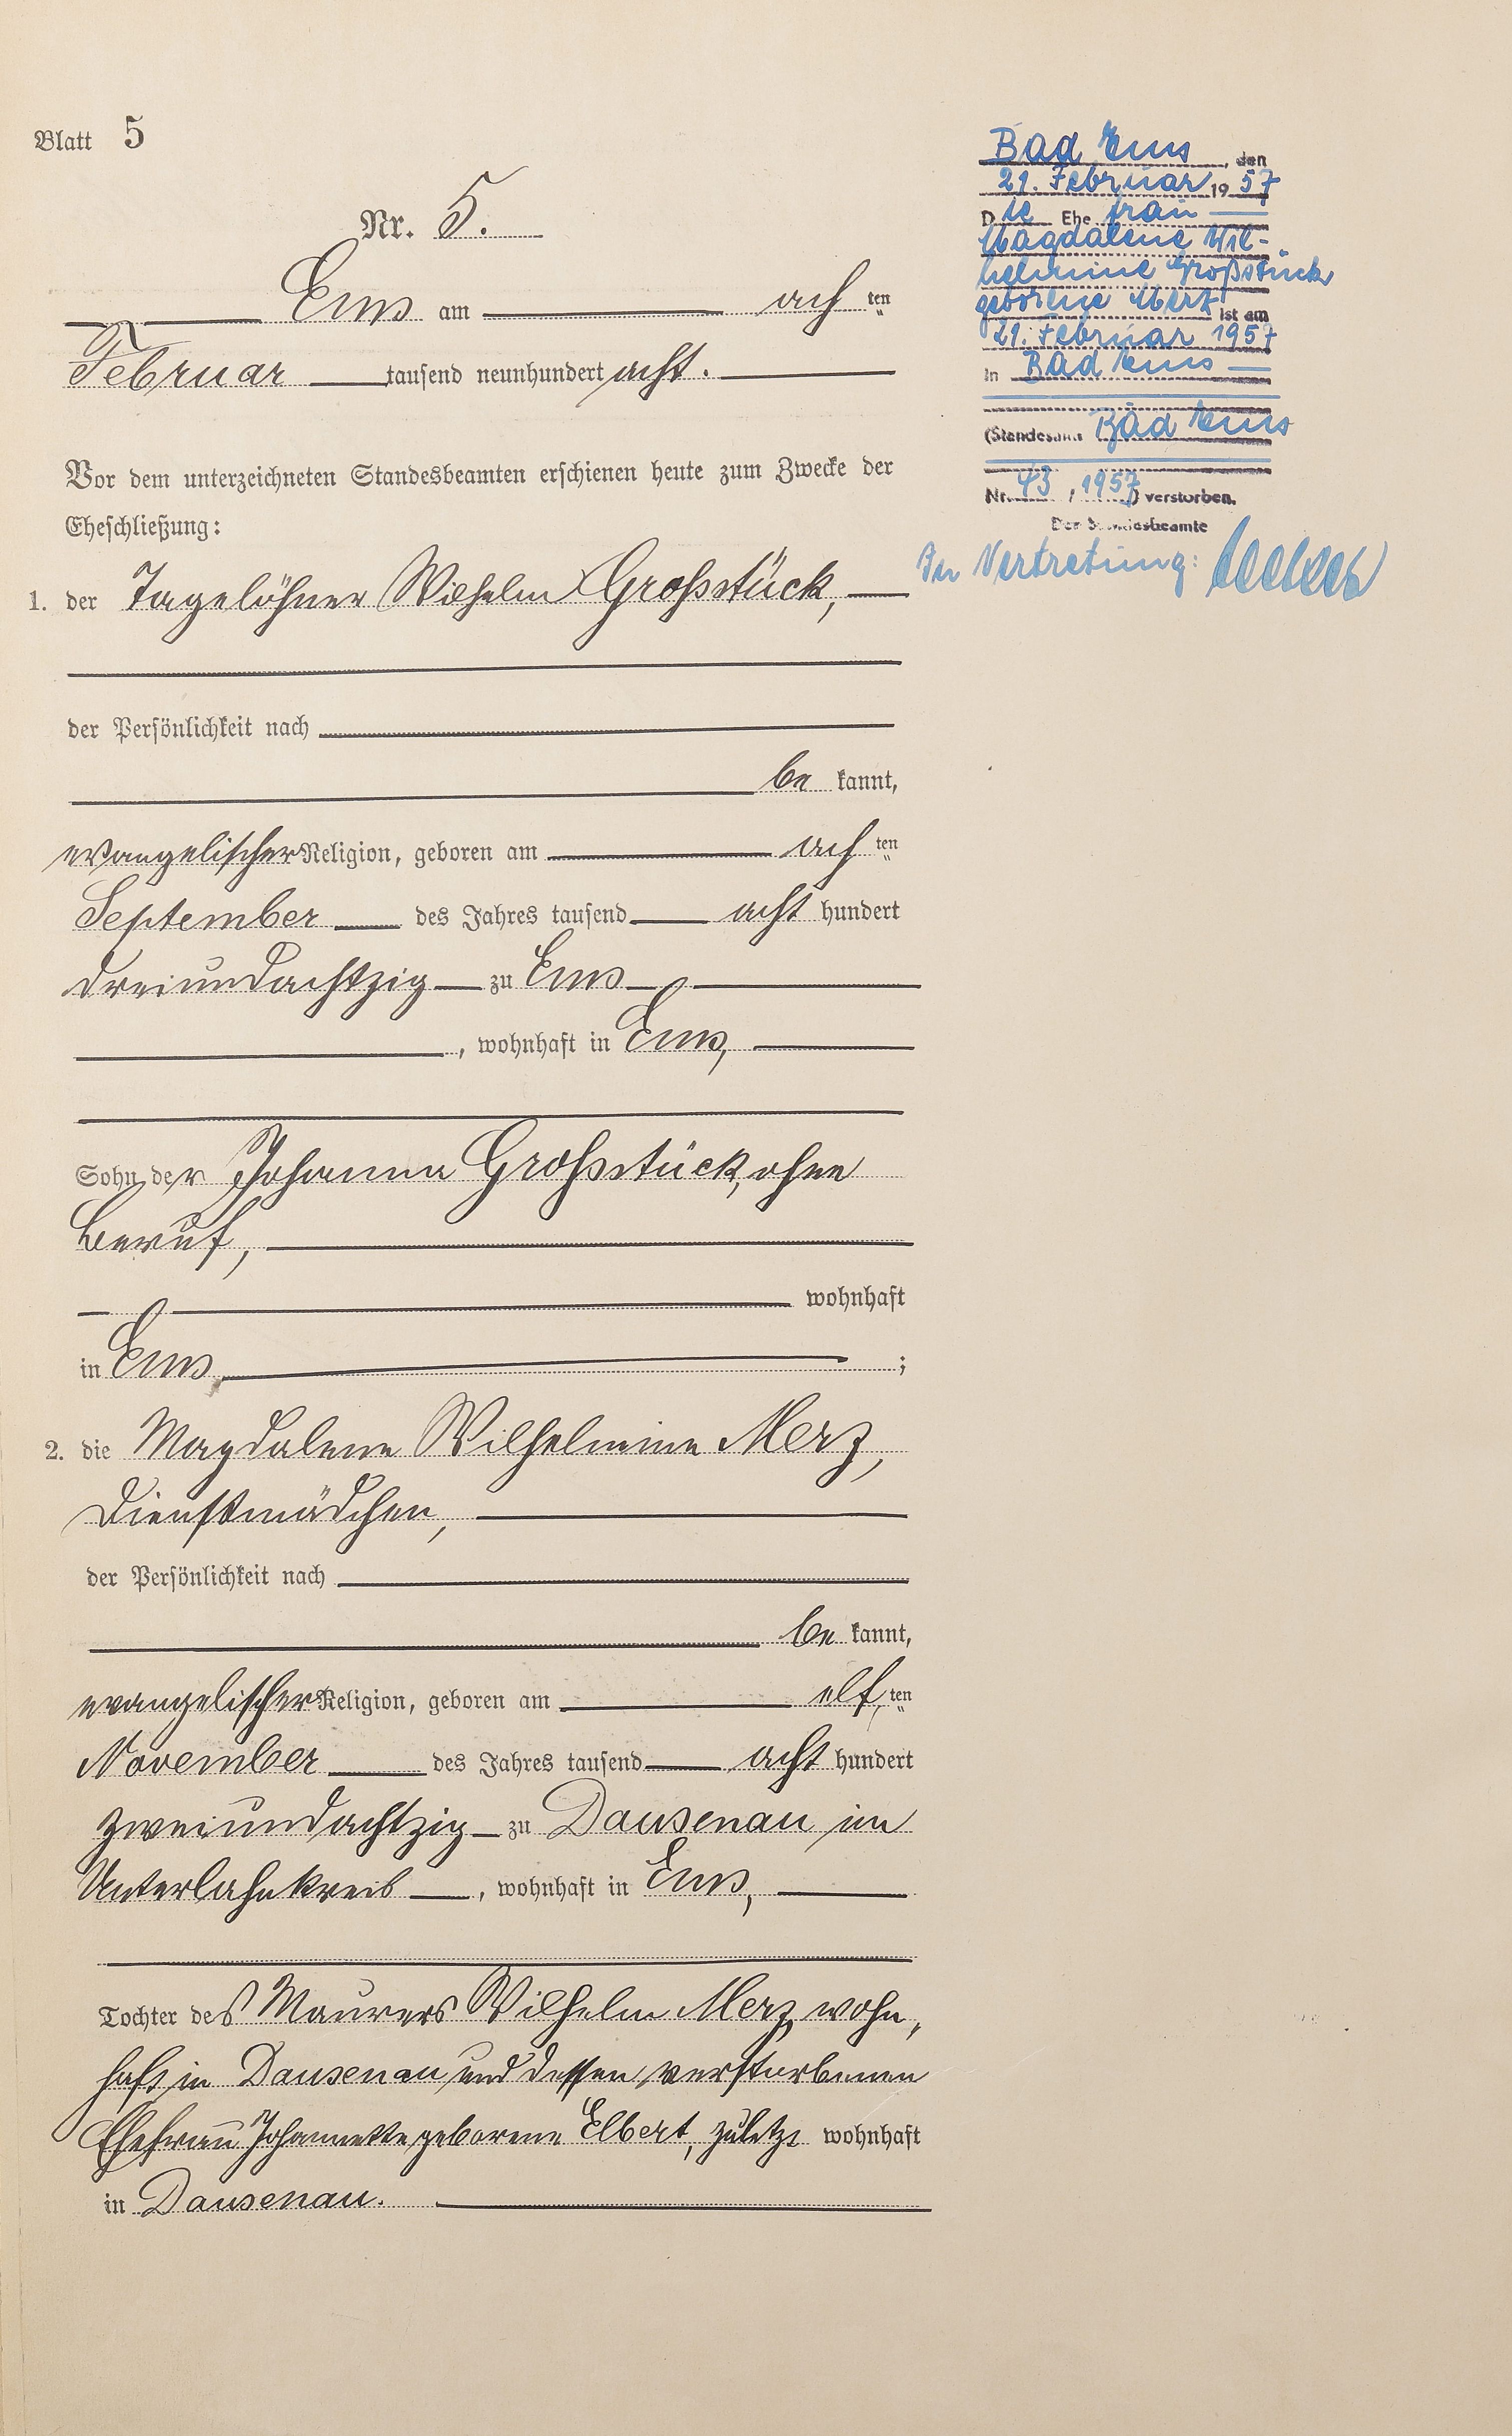 Blatt 5
Nr. 5.
Ems am ach ten
Februar tausend neunhundert acht.
Vor dem unterzeichneten Standesbeamten erschienen heute zum Zwecke der
Eheschließung:
1. der Tagelöhner Wilhelm Großstück,
der Persönlichkeit nach
be kannt,
evangelischer Religion, geboren am ach ten
September des Jahres tausend acht hundert
dreiundachtzig zu Ems
, wohnhaft in Ems,
Sohn der Johanna Großstück, ohne
Beruf,
wohnhaft
in Ems ;
2. die Magdalene Wilhelmine Merz,
Dienstmädchen,
der Persönlichkeit nach
be kannt,
evangelischer Religion, geboren am elf ten
November des Jahres tausend acht hundert
zweiundachtzig zu Dausenau im
Unterlahnkreis , wohnhaft in Ems,
Tochter des Maurers Wilhelm Merz, wohn„
haft in Dausenau und dessen verstorbenen
Ehefrau Johannette geborene Elbert, zuletzt wohnhaft
in Dausenau.
Bad Ems , den
21. Februar 19 57
Die Ehe frau
Magdalene Wil-
helmine Großstück
geborene Merz ist am
21. Februar 1957
in Bad Ems
(Standesamt Bad Ems
Nr. 43 / 1957) verstorben.
Der Standesbeamte
In Vertretung: